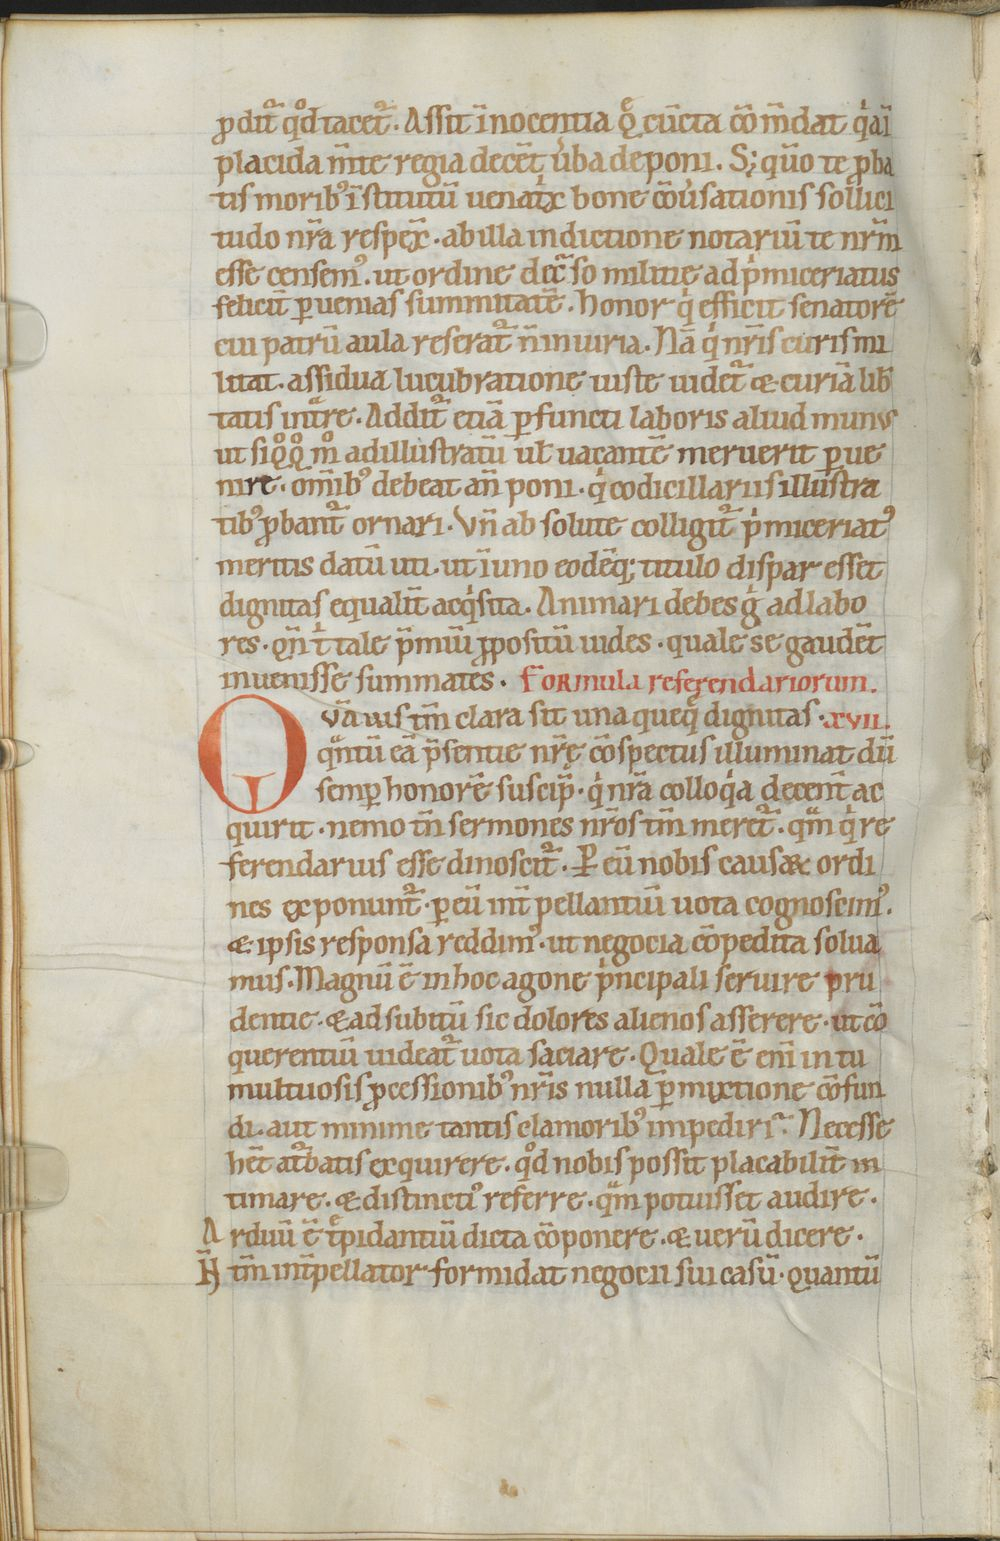 ꝓdit̄ qͦd tacet᷑. Assit īnocentia q̨ cūcta cōm̄dat qͥ aī
placida m̄te regia decēt ūba deponi. Sꝫ qm̄o te ꝓba
tis moribꝰ īstitutū uenatͥx bone cōuͥsationis sollici
tudo nr̄a respex̄. ab illa indictione notariū te nr̄m
esse censemꝰ. ut ordine decͣso militie ad pͥmiceriatus
felicit̄ ꝑuenias summitatē. honor qͥ efficit senatorē
cui patrū aula reserat᷑ n̄ iniuria. Nā qͥ nr̄is curis mi
litat. assidua lucubratione iuste uidet᷑ & curiā lib̄
tatis int̄re. Addit᷑ etiā ꝑfuncti laboris aliud munus
ut siqͦqͦ mͦ ad illustratū ul̄ uacantē meruerit ꝑue
nire. om̄ibꝰ debeat an̄poni. qͥ codicillariis illustra
tibꝰ ꝓbant᷑ ornari. Vn̄ absolute colligit᷑ pͥmiceriatꝰ
meritis datū uti. ut ī uno eodēqꝫ titulo dispar esset
dignitas equalit̄ acqͥsita. Animari debes gͦ ad labo
res. qn̄ tͥ tale p̄miū ꝓpositū uides. quale se gaudēt
inuenisse summates. Formula referendariorum.
Qvāuis tm̄ clara sit una queq̨ dignitas. XVII.
qͣntū eā p̄sentie nr̄ę cōspectus illuminat dū
semꝑ honorē suscip̄. qͥ nr̄a colloqͥa decent̄ ac
quirit. nemo tn̄ sermones nr̄os tm̄ meret᷑. qͣm qͥ re
ferendarius esse dinoscit᷑. Ꝑ eū nobis causaꝝ ordi
nes exponunt᷑. ꝑ eū int̄pellantiū uota cognoscimꝰ.
& ipsis responsa reddimꝰ. ut negocia cōpedita solua
mus. Magnū ē in hoc agone pͥncipali seruire pru
dentie. & ad subitū sic dolores alienos asserere. ut cō
querentiū uideat᷑ uota saciare. Quale ē eni̅ in tu
multuosis ꝓcessionibꝰ nr̄is nulla ꝑmixtione cōfun
di. aut minime tantis clamoribꝰ impediri? Necesse
hēt at᷑batis exquirere. qͦd nobis possit placabilit̄ in
timare. & distinctiꝰ referre. qͣm potuisset audire.
Arduū ē tͤpidantiū dicta cōponere. & uerū dicere.
N̄ tm̄ int̄pellator formidat negocii sui casū. quantū